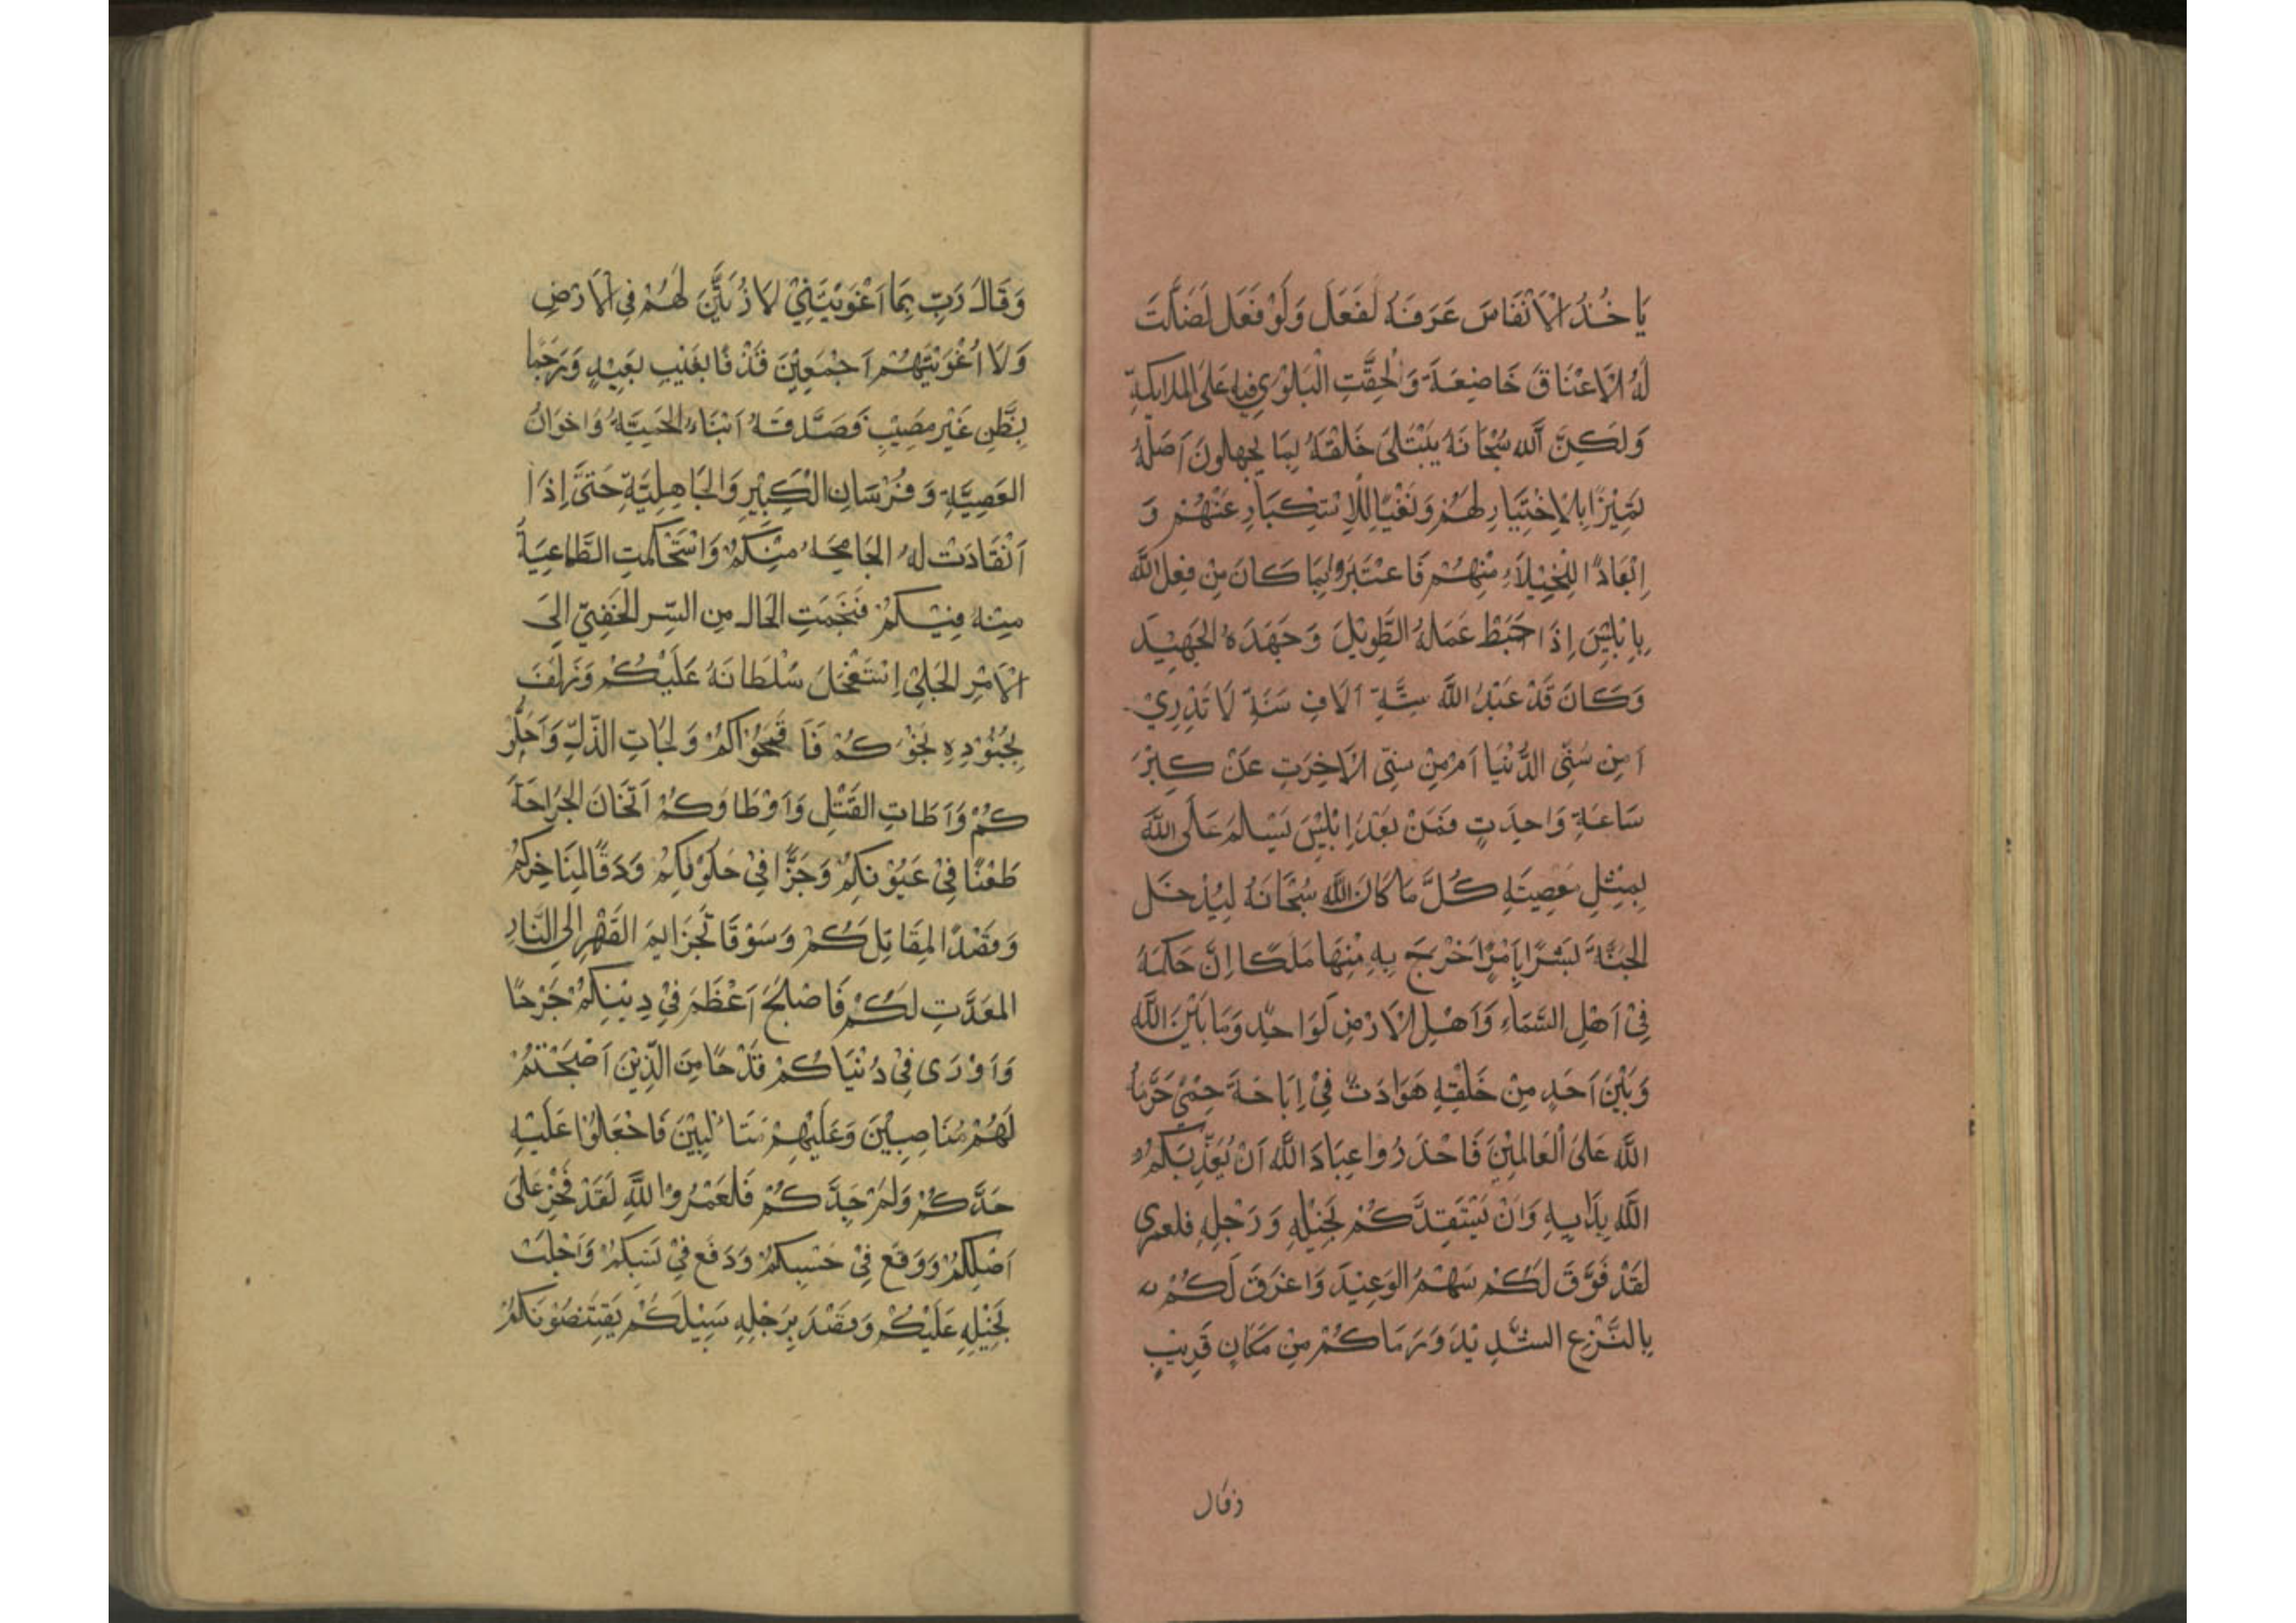 يَاخُذُ الْأَنْفَاسَ عَرَفَهُ لَفَعَلَ وَلَوْ فَعَلَ لَضَلَّتْ
لَهُ الْأَعْنَاقَ خَاضِعَةً وَلَحِقَّتِ الْبَلْوٰى فِيهِ عَلَى الْمَلَائِكَةِ
وَلَكِنَّ اللّٰه سُبْحَانَهُ يَبْتَلَى خَلْقَهُ بِمَا يَجْهَلُونَ اَصْلَهُ
تَمِيْزًا بِالْاِخْتِيَارِ لَهُمْ وَنَفْيًا لِلْاِسْتِكْبَارِ عَنْهُمْ وَ
اِبْعَادًا لِلْخُيَلَاءِ مِنْهُمْ فَاعْتَبِرُوا بِمَا كَانَ مِنْ فِعْلِ اللّٰه
بِاِبْلِيْسَ اِذَا حَبَطْ عَمَلَهُ الطَّوِيْلَ وَجَهَدَهُ الْجَهِيْدَ
وَكَانَ قَدْ عَبَدَ اللّٰهَ سِتَّةِ اٰلَافِ سَنَةٍ لَا تَدْرِيْ
اَمِنْ سُنِّى الدُّنْيَا اَمْ مِنْ سِنِّى الْاٰخِرَتِ عَنْ كِبْرَ
سَاعَةِ وَاحِدَتٍ فَمَنْ بَعْدَ اِبْلِيْسَ يَسْلَمُ عَلَى اللّٰهَ
بِمِثْلِ مَعْصِيَتَهِ كُلَّ مَا كَانَ اللّٰه سُبْحَانَهُ لِيُدْخَلَ
الجَنَّةَ بَشَرًا بِاَمْرًا اَخْرَجَ بِهِ مِنْهَا مَلَكًا اِنَّ حَكَمَهُ
فِىْ اَهْلِ السَّمَاءِ وَاَهْلِ الْاَرْضِ لَوَاحِدٍ وَمَا بَيْنَ اللّٰه
وَبَيْنَ اَحَدٍ مِنْ خَلْقِهِ هَوَادَتٌ فِىْ اِبَاحَةَ حِمًى حَرَّمَهُ
اللّٰه عَلَى الْعَالَمِيْنَ فَاحْذَرُوا عِبَادَ اللّٰه اَنْ يُعَذِّبَكُمْ
اللّٰه بِدَايِهِ وَاَنْ يَسْتَفِدَّكُمْ بِخَيْلِهِ وَرَجْلِهِ فلعمرى
لَقَدْ فَوَّقَ لَكُمْ سَهْمُ الوَعِيْدَ وَاغْرَقَ لَكُمْ
بِالنَّزْعِ الشَّدِيْدَ وَرَمَاكُمْ مِنْ مَكَانٍ قَرِيْبٍ
وقال
وَقَالَ رَبِّ بِمَا اَغْوَيْتَنِيْ لَاُزَيِّنَنَّ لَهُمْ فِى الْاَرْضِ
وَلَاُغْوِيَنَّهُمْ اَجْمَعِيْنَ قَذْفًا بِغَيْبِ بَعِيْدٍ وَرَجْمًا
بِظَّنٍ غَيْرِ مُصِيْبِ فَصَدَّقَهُ اَبْنَاءُ الحَمِيَّةُ وَاخْوَانُ
العَصِبِيَّةِ وَفُرْسَانِ الْكِبْرِ وَالجَاهِلِيَّةِ حَتَّى اِذَا
اَنْقَادَتْ لَهُ الجَامِحَهُ مِنْكُمْ وَاسْتَحْكَمَتِ الطَّاعِيَةُ
مِنْهُ فِيْكُمْ فَنَجَمَتِ الْحَالُ مِنَ السِّرِ الْخَفِيِّ اِلَىَ
الْاَمْرِ الْجَلِيْ اِسْتَفْحَلَ سُلْطَانَهُ عَلَيْكُمْ وَدَلَفَ
بِجُنُوْدِهِ نَحْوَكُمْ فَاَقْحَمُوْاكُمْ وَلَجَاتِ الذُّلِّ وَاَحَلُّو
كُمْ وَرَطَاتِ القَتْلِ وَاَوْطَاوَكُمْ اَثْخَانَ الْجَرَاحَةَ
طَعْنًا فِىْ عُيُوْنِكُمْ وَحَزًّا فِىْ حَلَوْقِكِمْ وَدَقًّا لِمَنَاخِرِكُمْ
وَقَصْدًا لِمَقَاتِلِكُمْ وَسَوْقًا بِخَزَايِمَ القَهْرِ اِلَى النَّارِ
المعَدَّتِ لَكُمْ فَاَصْبَحَ اَعْظَمَ فِىْ دِيْنِكُمْ جَرْحًا
وَاَوْرَى فِىْ دُنْيَاكُمْ قَدْحًا مِنَ الَّذِيْنَ اَصْبَحْتُمْ
لَهُمْ مُنَاصِبِيْنَ وَعَلَيْهِمْ مُتَاَلِّبِيْنَ فَاجْعَلُوْا عَلَيْهِ
حَدَّكُمْ وَلَهُ جِدَّكُمْ فَلَعَمْرُ وا للّٰهِ لَقَدْ فَخَرَ عَلَى
اَصْلِكُمْ وَوَقَعَ فِىْ حَسَبِكُمْ وَدَفَعَ فِىْ نَسَبِكُمْ وَاَجْلَبَ
بِخَيْلِهِ عَلَيْكُمْ وَقَصْدَ بِرَجْلِهِ سَبِيْلَكُمْ يَقْتَنِصُوْنَكُمْ